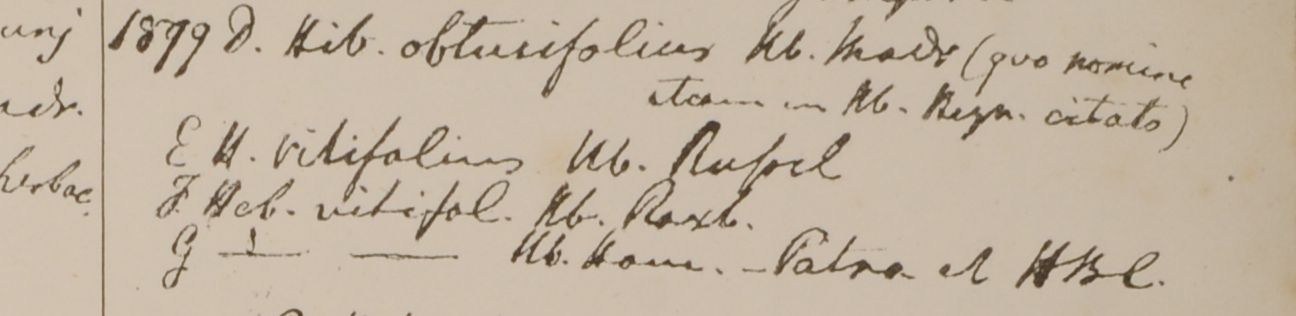 unj
adr.
herbac.
1899 D. Hib. obtusifolius Hb. Madr (quo nomine
etiam in Hb. Heyn. citato)
E H. vitifolius Hb. Russel
F. Heb. vitifol. Hb. Roxb.
G — — Hb. Ham. - Patna et HBC.